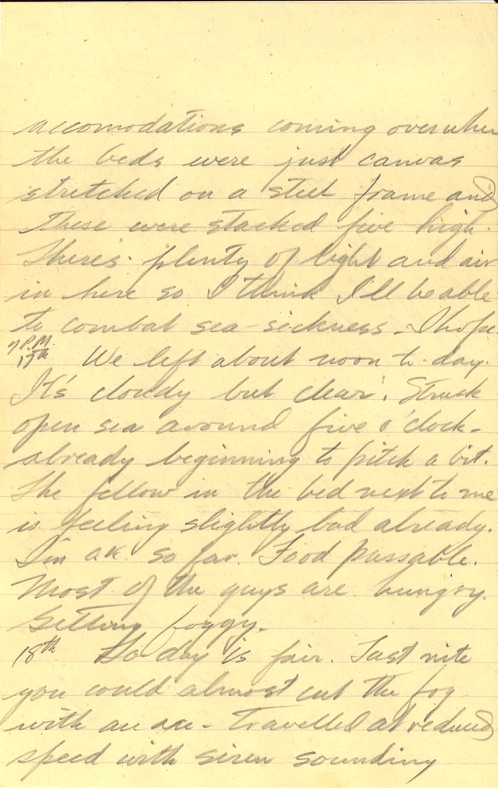 accomodations coming over when
the beds were just canvas
stretched on a steel frame and
these were stacked five high.
There's plenty of light and air
in here so I think I'll be able
to combat sea-sickness - I hope.
7 P.M.
17th We left about noon to-day.
It's cloudy but clear. Struck
open sea around five o'clock -
already beginning to pitch a bit.
The fellow in the bed next to me
is feeling slightly bad already.
I'm OK so far. Food passable.
Most of the guys are hungry.
Getting foggy.
18th To-day is fair. Last nite
you could almost cut the fog
with an axe - travelled at reduced
speed with siren sounding